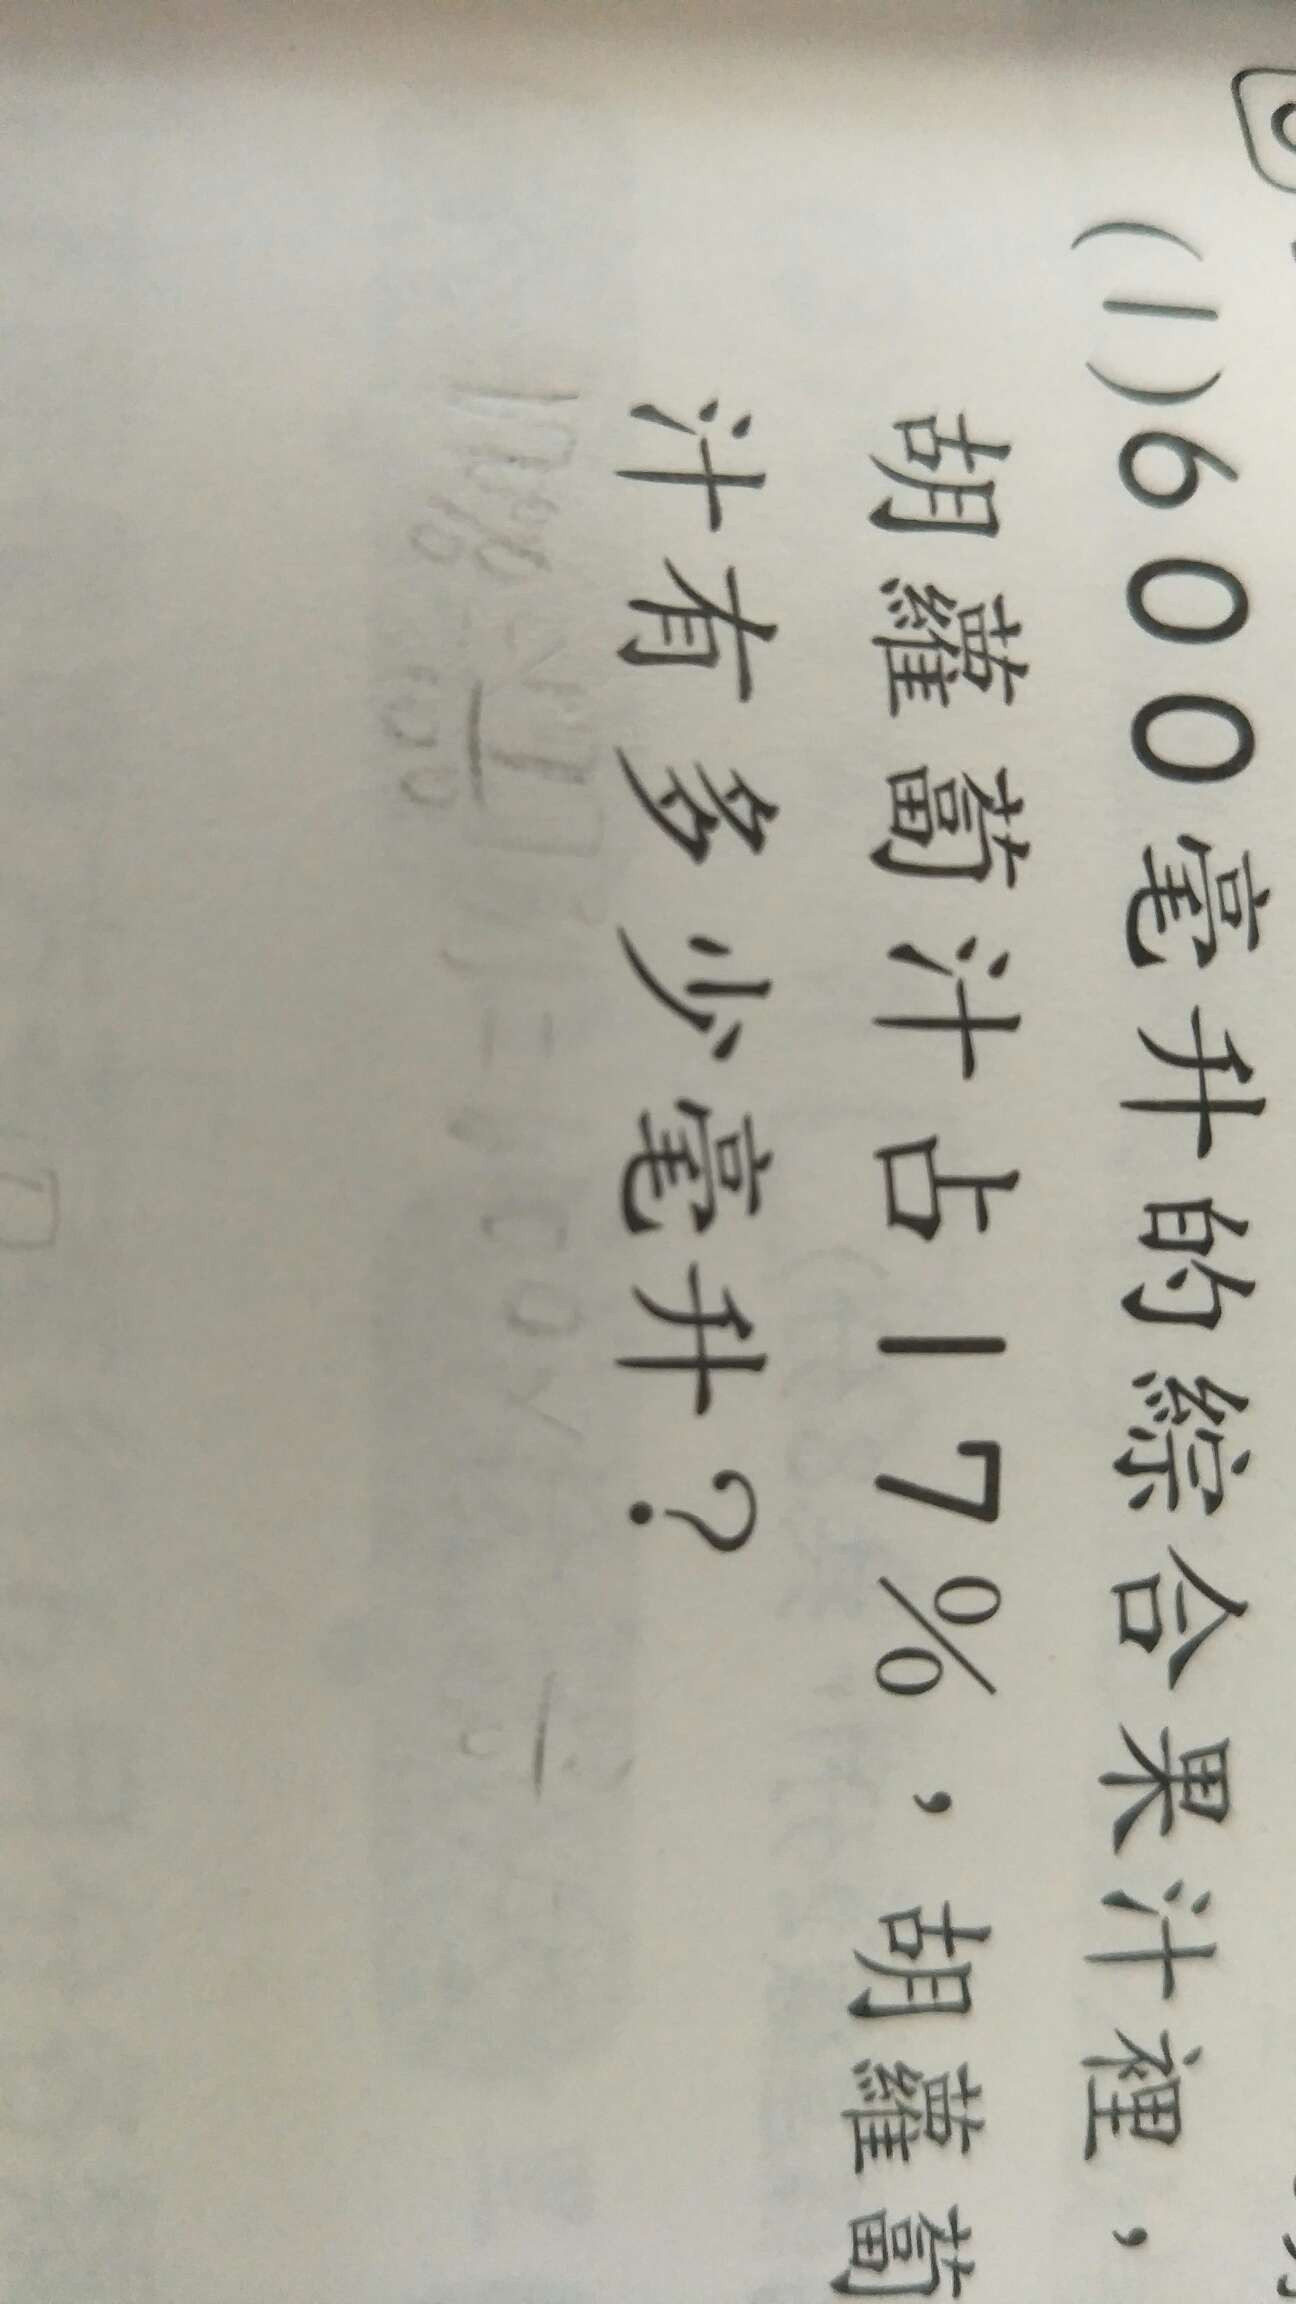 (1)600毫升的綜合果汁裡，
胡蘿蔔汁占17%，胡蘿蔔
汁有多少毫升？